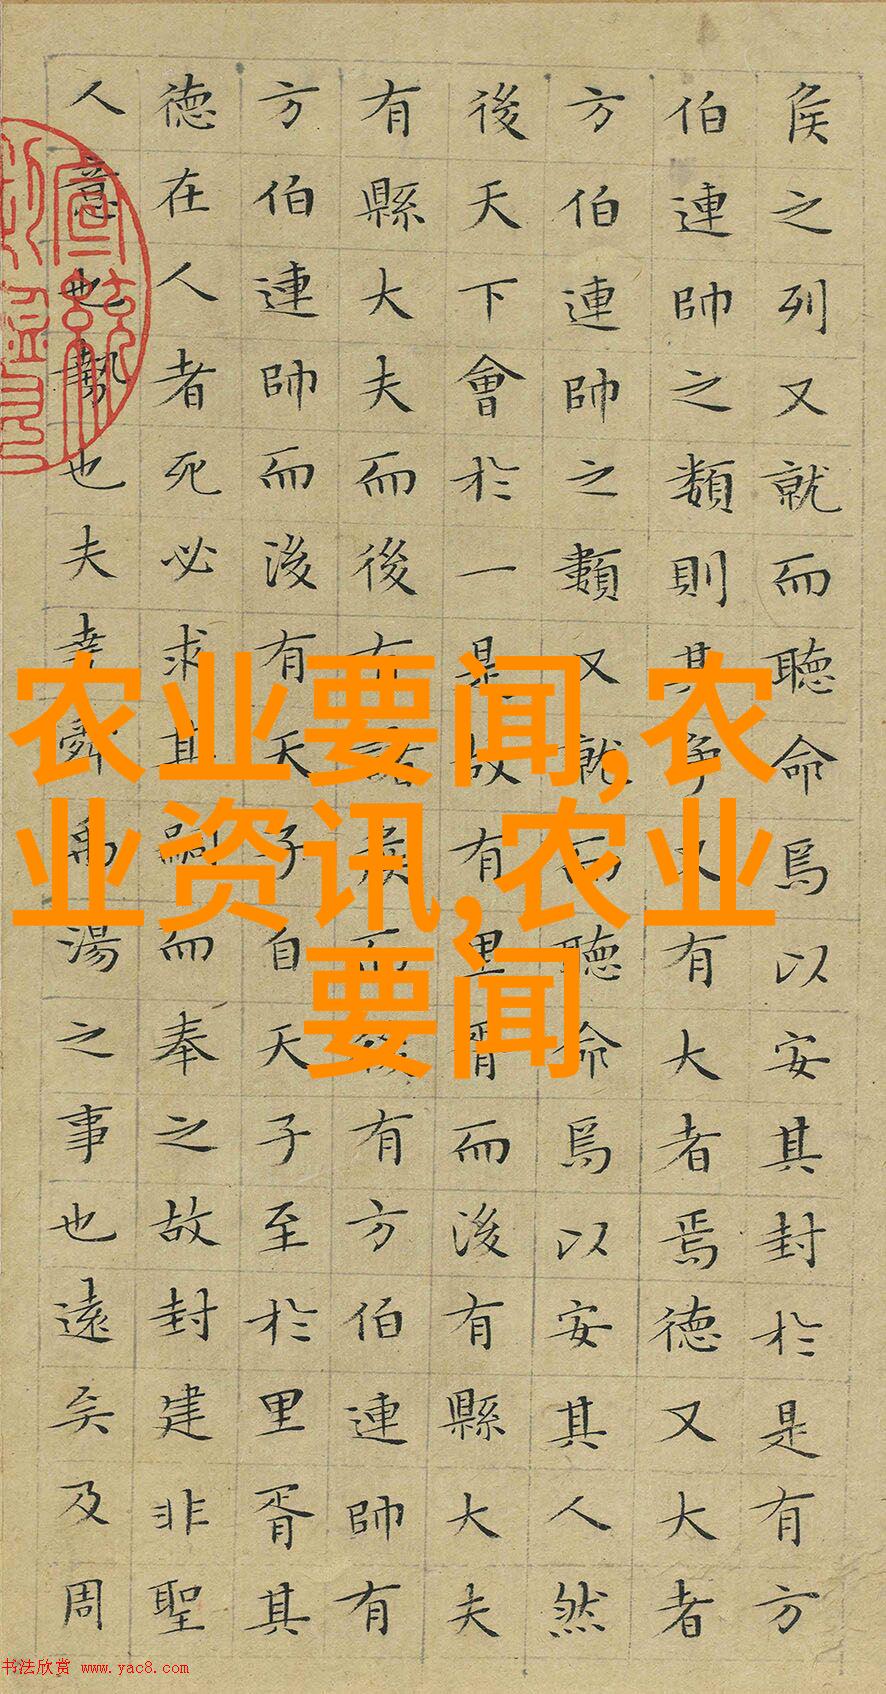 侯之列又就而聽命焉以安其封於是有方
伯連帥之類則其爭又有大者焉德又大者
方伯連帥之類又就而聽命焉以安其人然
後天下會於一是故有里胥而後有縣大夫
有縣大夫而後有諸侯而後有方伯連帥有
方伯連帥而後有天子自天子至於里胥其
德在人者死必求其嗣而奉之故封建非聖
人意也勢也夫堯舜禹湯之事也遠矣及周
农业要闻,农
业资讯,农业
要闻
书法欣赏 www.yac8.com